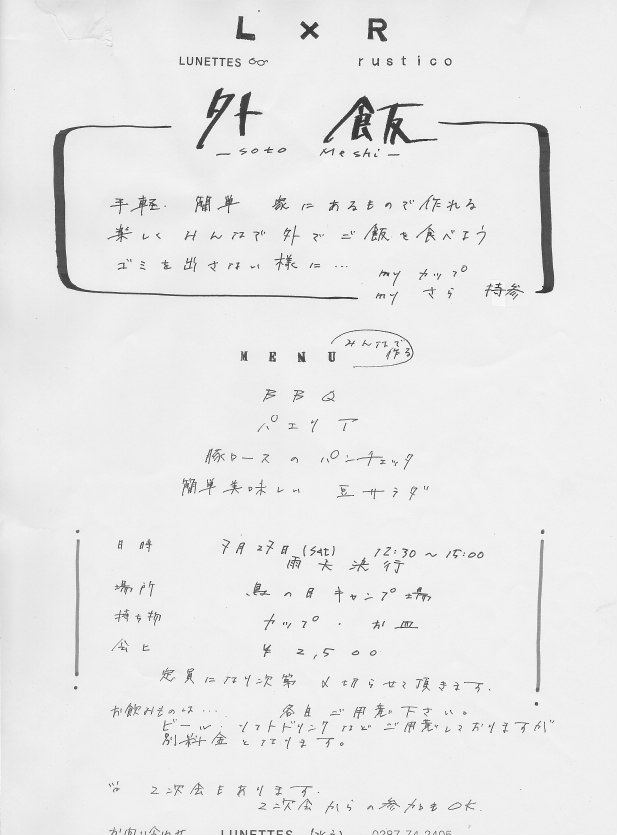 L × R
LUNETTES rustico
外 飯
— soto Meshi —
手軽・簡単 家にあるもので作れる
楽しく みんなで 外で ご飯を食べよう
ゴミを出さない様に…
my カップ
my さら 持参
MENU みんなで作る
BBQ
パエリア
豚ロースの パンチェッタ
簡単美味しい 豆サラダ
日時 7月27日(sat) 12:30～15:00
雨天決行
場所 の日キャンプ場
持ち物 カップ・お皿
会ヒ ¥2,500
定員になり次第 〆切らせて頂きます.
お飲みものは… 各自 ご用意下さい。
ビール・ソフトドリンクなど ご用意しておりますが
別料金となります。
2次会もあります.
2次会からの参加もOK.
お問い合わせ LUNETTES 0287-74-2405